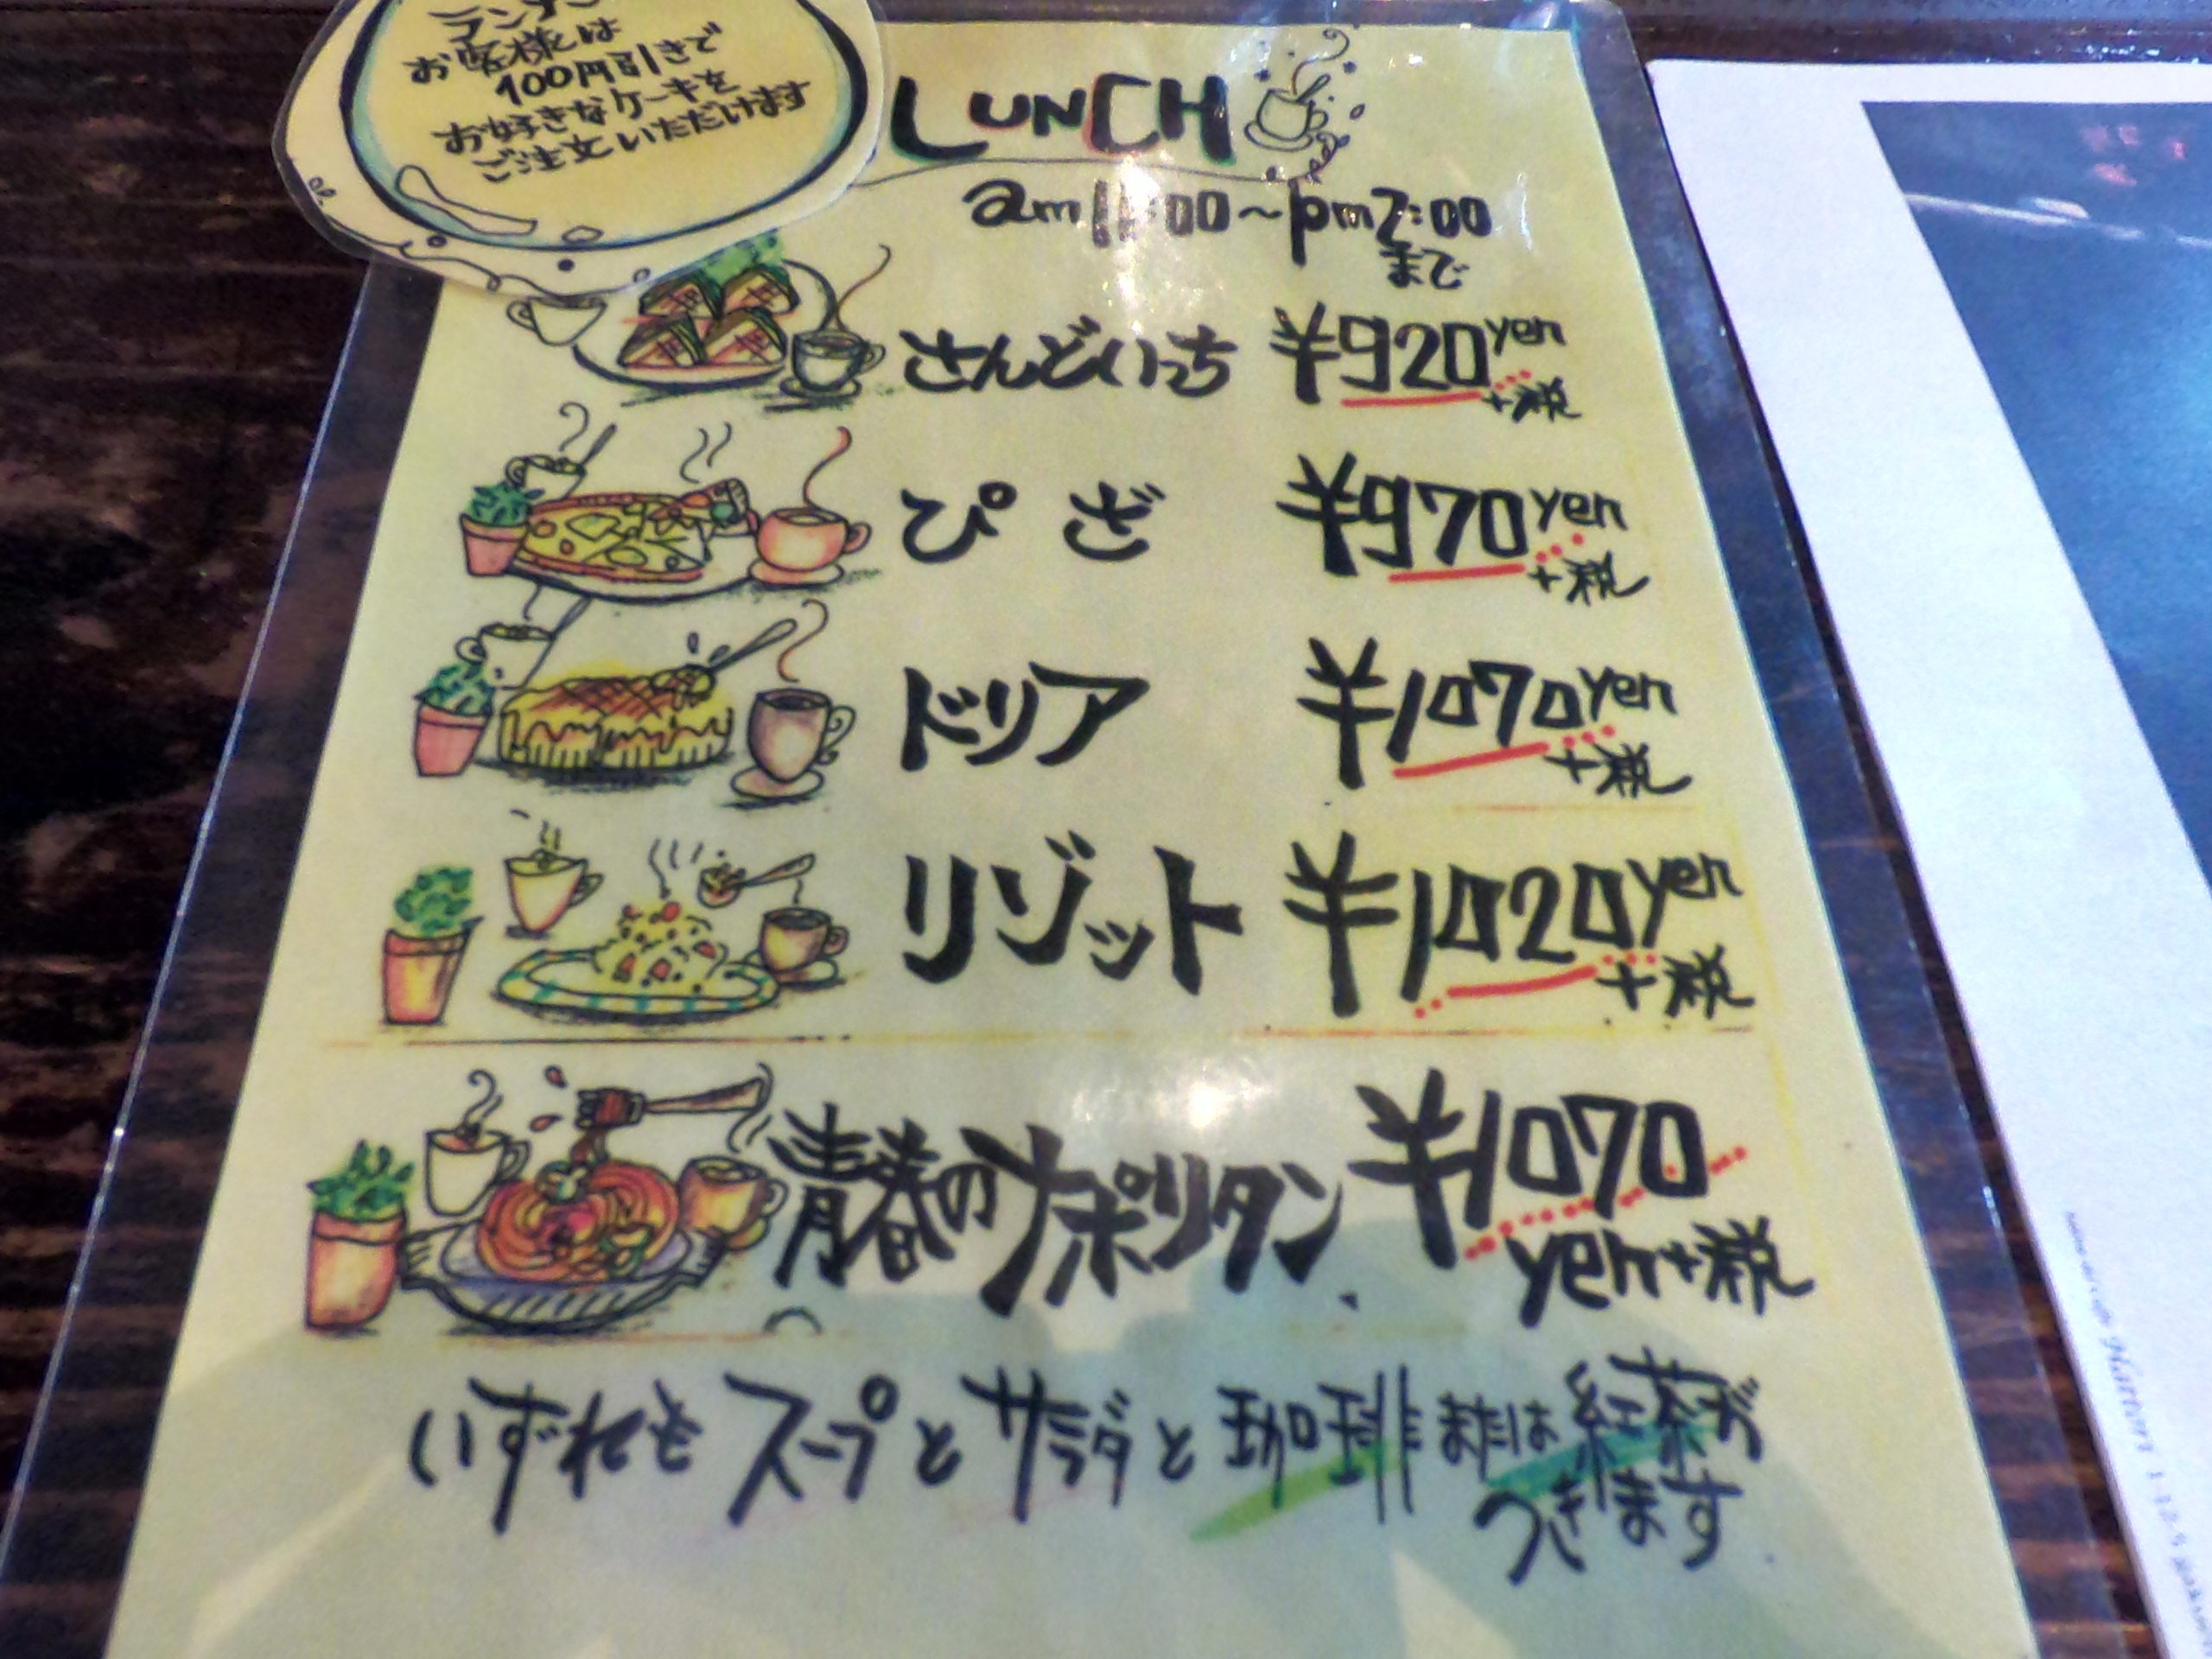 ランチの
お客様は
100円引きで
お好きなケーキを
ご注文いただけます
LUNCH
am11:00~pm2:00
まで
さんどいっち ¥920yen
+税
ぴざ ¥970yen
+税
ドリア ¥1070yen
+税
リゾット ¥1020yen
+税
青春のナポリタン ¥1070
yen+税
いずれもスープとサラダと珈琲または紅茶が
つきます